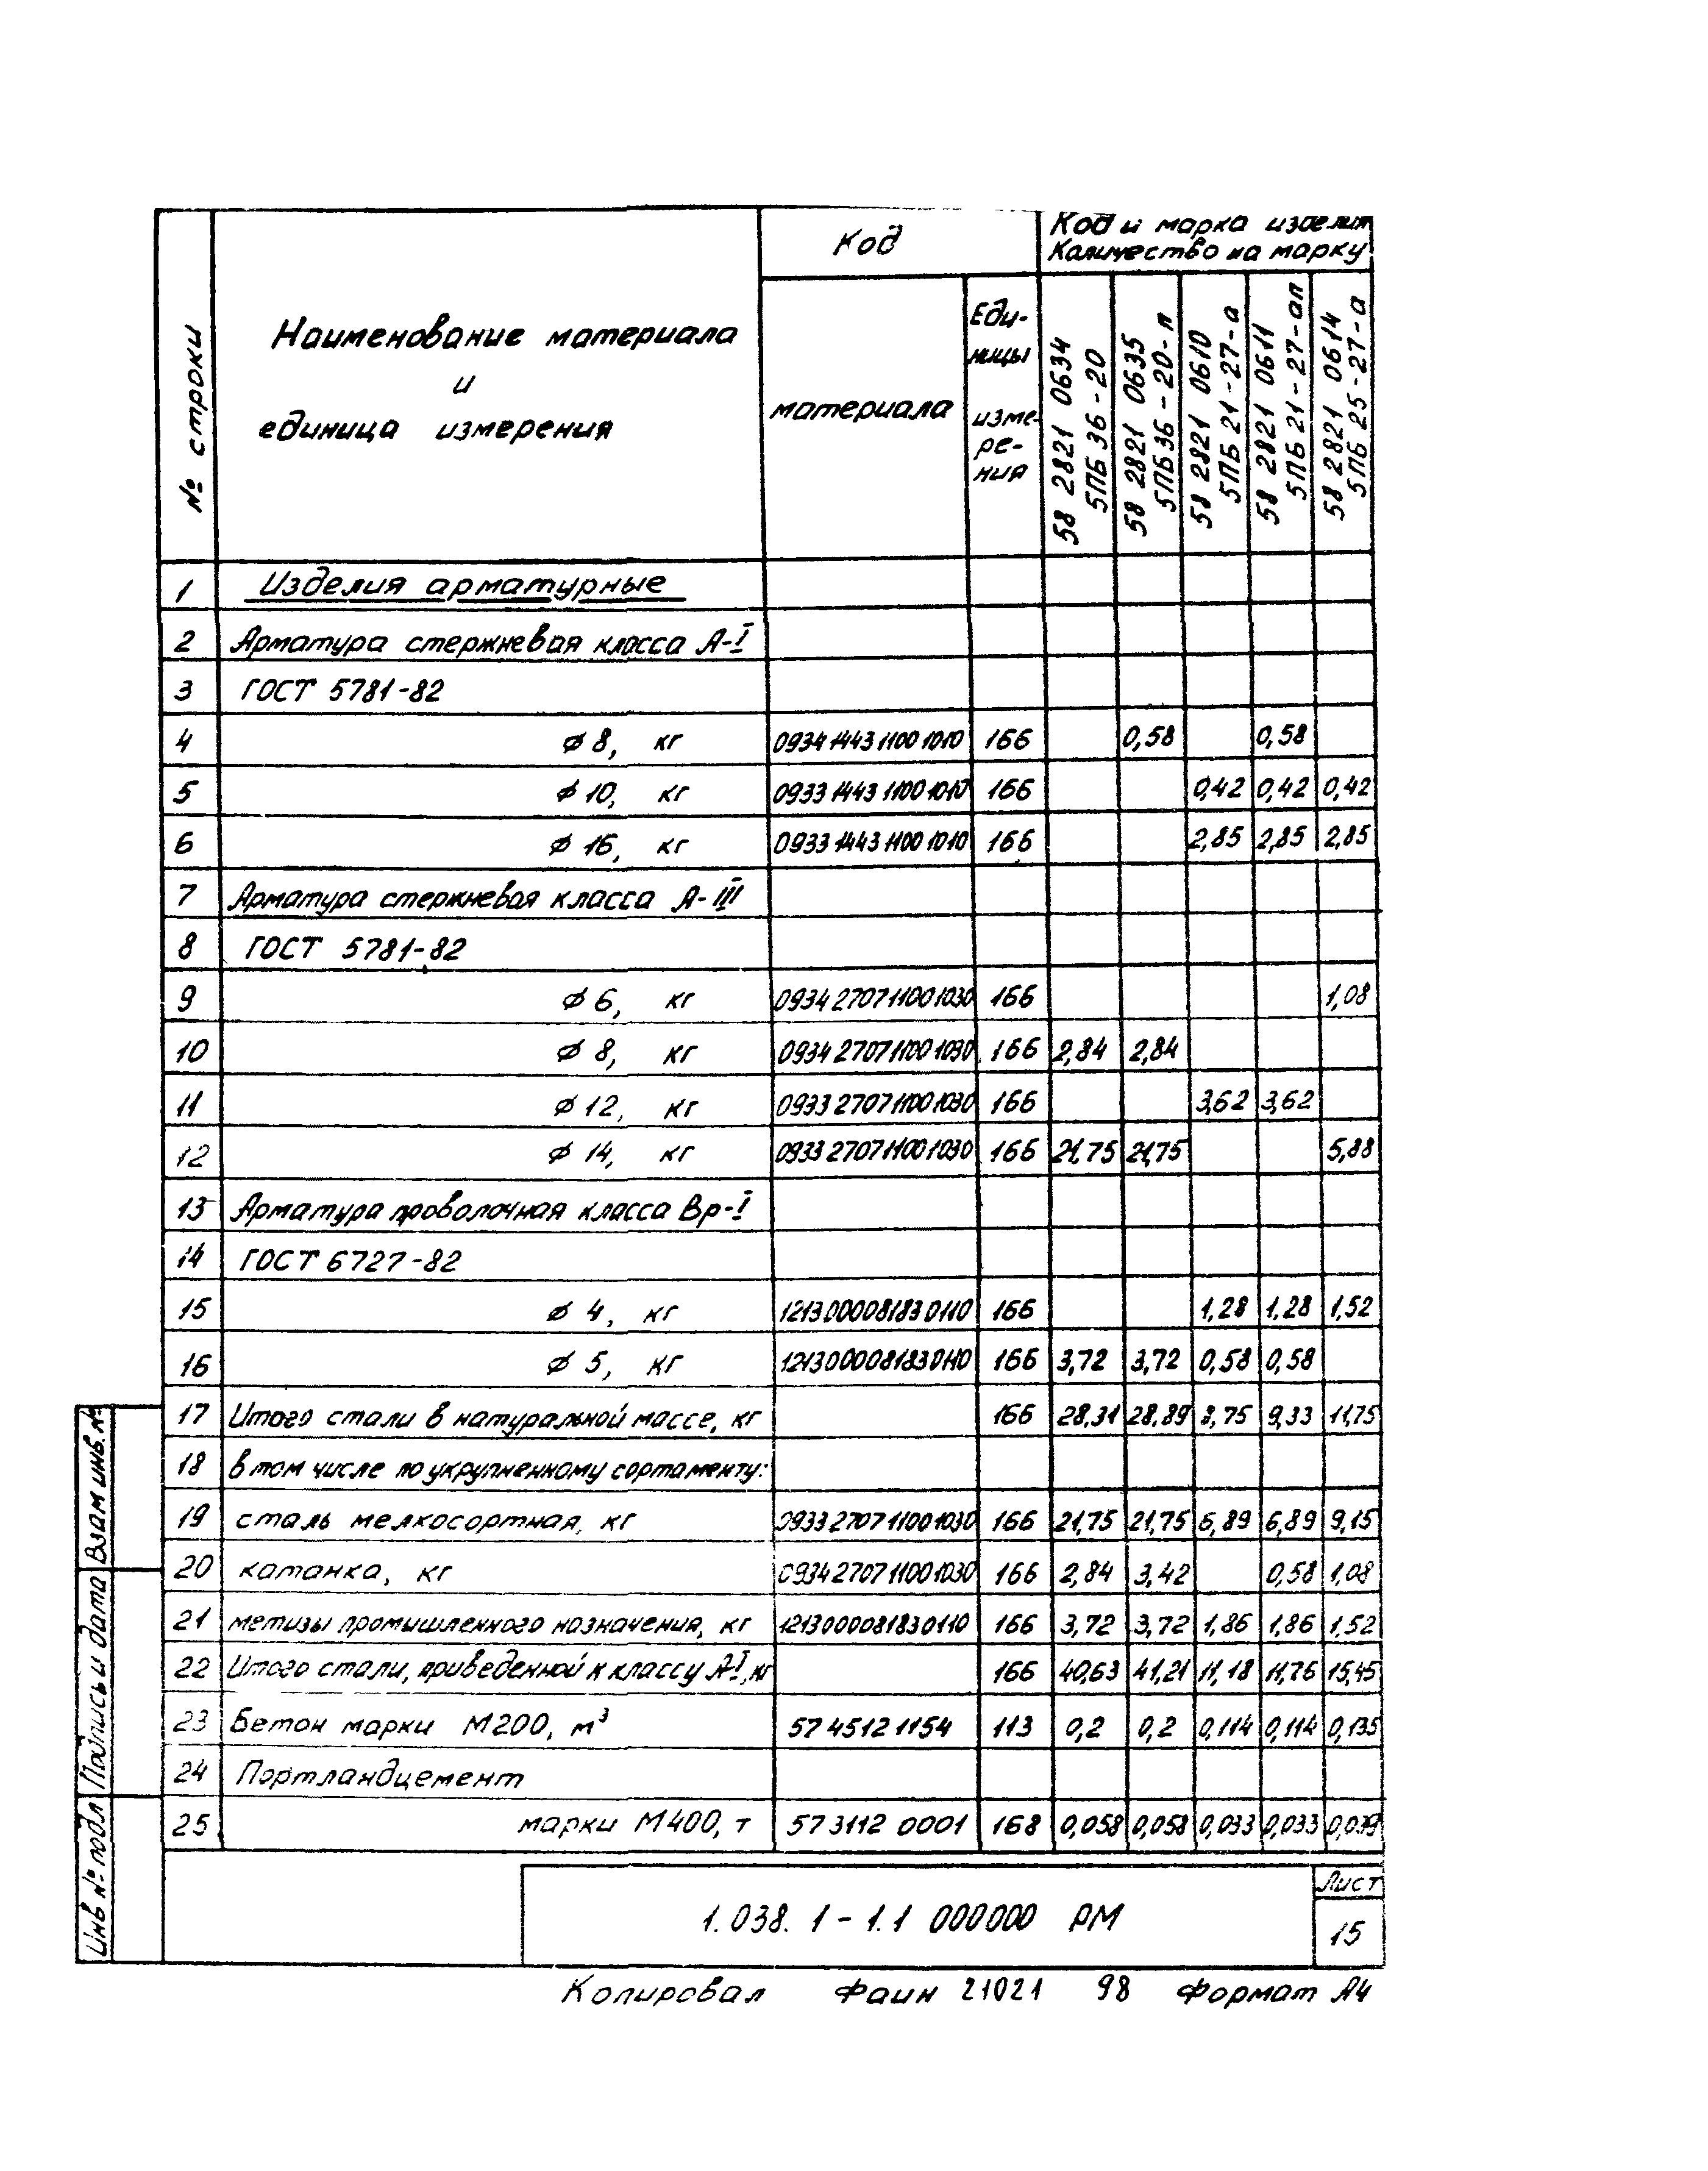 № строки
Наименование материала
и
единица измерения
Код
материала
Еди-
ницы
изме-
ре-
ния
Код и марка изделия
Количество на марку
58 2821 0634
5ПБ 36-20
58 2821 0635
5ПБ 36-20-п
58 2821 0610
5ПБ 21-27-а
58 2821 0611
5ПБ 21-27-ап
58 2821 0614
5ПБ 25-27-а
1 Изделия арматурные
2 Арматура стержневая класса А-I
3 ГОСТ 5781-82
4 ϕ 8, кг 0934 1443 1100 1010 166 0,58 0,58
5 ϕ 10, кг 0933 1443 1100 1010 166 0,42 0,42 0,42
6 ϕ 16, кг 0933 1443 1100 1010 166 2,85 2,85 2,85
7 Арматура стержневая класса А-III
8 ГОСТ 5781-82
9 ϕ 6, кг 0934 2707 1100 1030 166 1,08
10 ϕ 8, кг 0934 2707 1100 1030 166 2,84 2,84
11 ϕ 12, кг 0933 2707 1100 1030 166 3,62 3,62
12 ϕ 14, кг 0933 2707 1100 1030 166 21,75 21,75 5,88
13 Арматура проволочная класса Вр-I
14 ГОСТ 6727-82
15 ϕ 4, кг 1213 0000 8183 0110 166 1,28 1,28 1,52
16 ϕ 5, кг 1213 0000 8183 0110 166 3,72 3,72 0,58 0,58
17 Итого стали в натуральной массе, кг 166 28,31 28,89 8,75 9,33 11,75
18 в том числе по укрупненному сортаменту:
19 сталь мелкосортная, кг 0933 2707 1100 1030 166 21,75 21,75 6,89 6,89 9,15
20 катанка, кг 0934 2707 1100 1030 166 2,84 3,42 0,58 1,08
21 метизы промышленного назначения, кг 1213 0000 8183 0110 166 3,72 3,72 1,86 1,86 1,52
22 Итого стали, приведенной к классу А-I, кг 166 40,63 41,21 11,18 11,76 15,45
23 Бетон марки М200, м³ 57 4512 1154 113 0,2 0,2 0,114 0,114 0,135
24 Портландцемент
25 марки М400, т 57 3112 0001 168 0,058 0,058 0,033 0,033 0,039
Взам инв. №
Подпись и дата
Инв № подл
1.038.1-1.1 000000 РМ
Лист
15
Копировал Фаин 21021 98 Формат А4